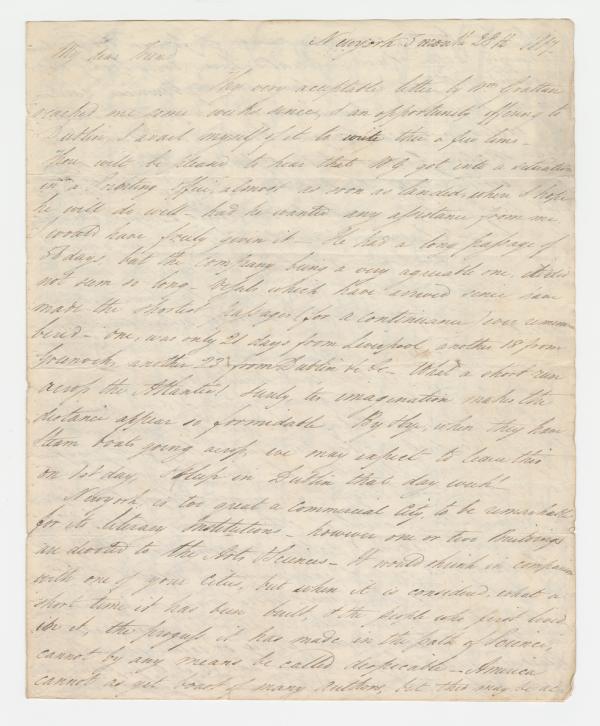 Newyork 3 month 28th 1817
My dear
Thy very acceptable letter by Wm Grattan
reached me some weeks since, & an opportunity offering to
Dublin, I avail myself of it to write thee a few lines -
Thou will be pleased to hear that W G got into a situation
in a Printing Office, almost as soon as landed, when I hope
he will do well - had he wanted any assistance from me
I would have freely given it - He had a long passage of
days, but the Company being a very agreeable one, it did
not seem so long - Vessels which have arrived since have
made the shortest passages (for a continuance) ever remem
bered - one, was only 21 days from Liverpool, another 18 from
Greenock, another 23 from Dublin &c &c - What a short run
across the Atlantic! surely the imagination makes the
distance appear so formidable By & bye, when they have
Steam boats going across, we may expect to leave this
on 1st day, & sleep in Dublin that day week!
Newyork is too great a Commercial City, to be remarkable
for its literary Institutions - however one or two Buildings
are devoted to the Arts & Sciences - It would shrink in comparison
with one of your Cities, but when it is considered, what a
short time it has been built, & the people who first lived
in it, the progress it has made in the path of Science,
cannot by any means be called despicable - America
cannot as yet boast of many Authors, but this may be at